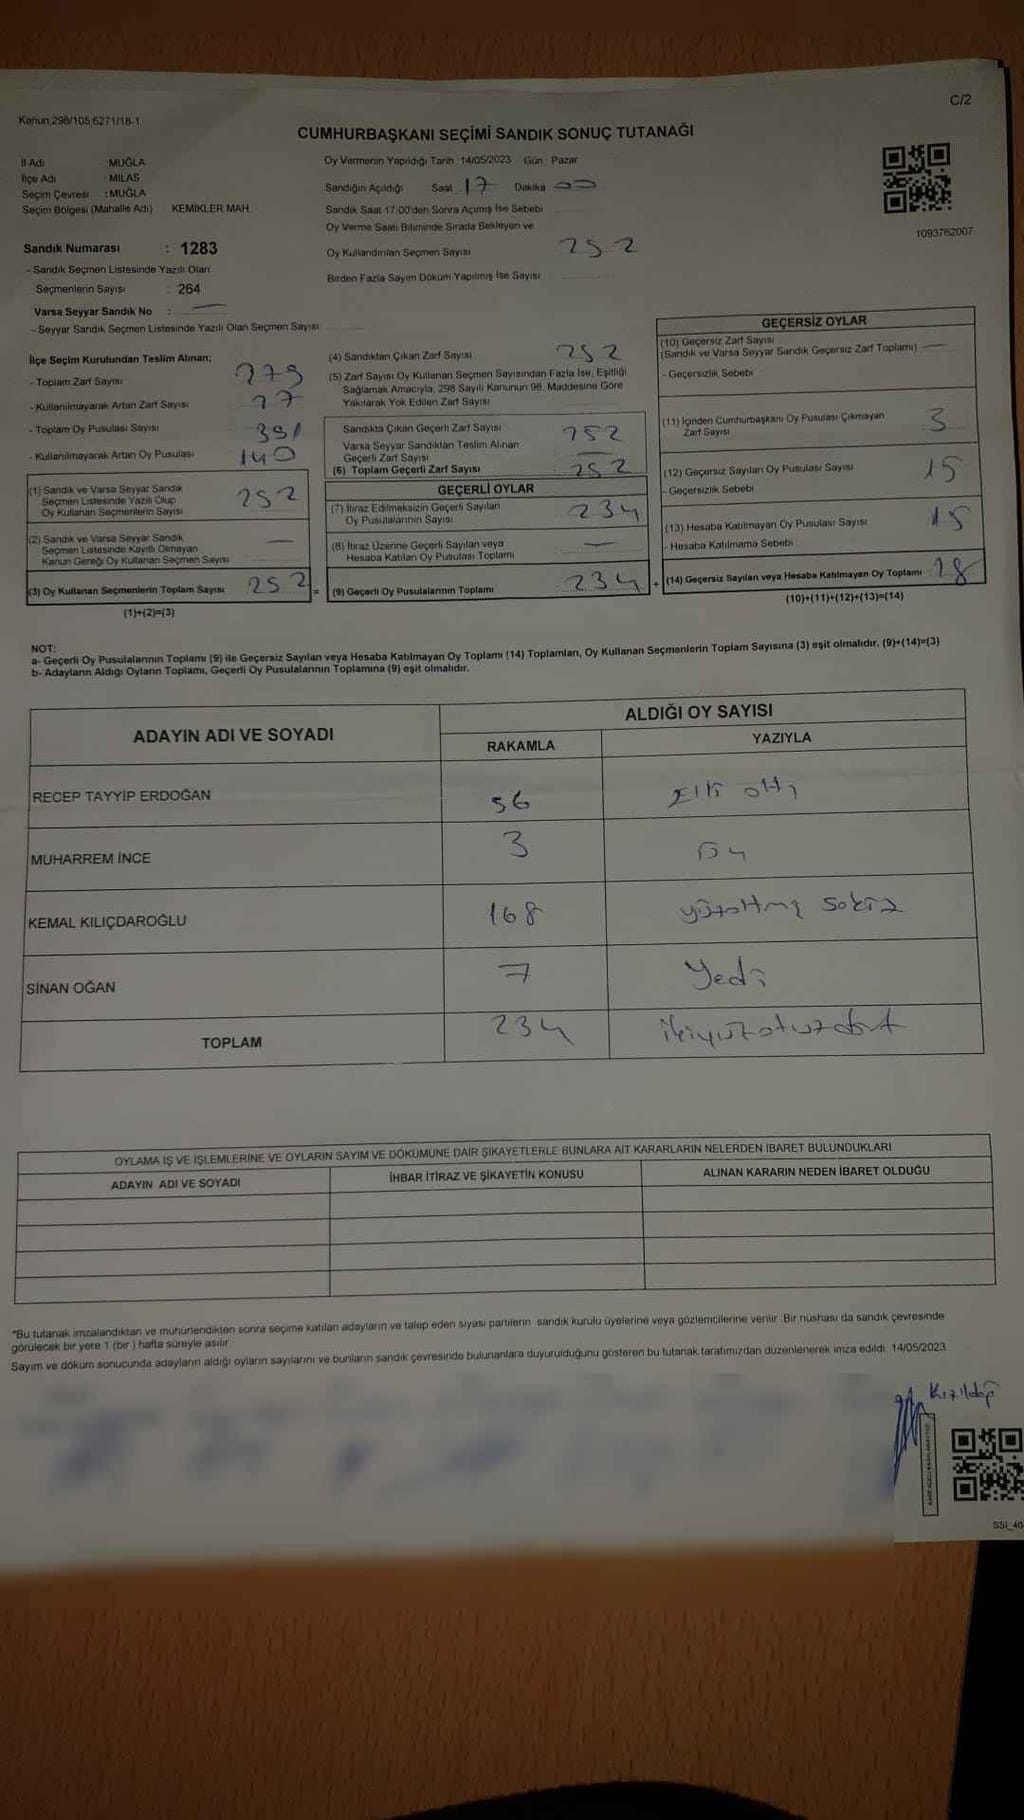 C/2
Kanun.298/105,6271/18-1
CUMHURBAŞKANI SEÇİMİ SANDIK SONUÇ TUTANAĞI
İl Adı : MUĞLA
İlçe Adı : MİLAS
Seçim Çevresi : MUĞLA
Seçim Bölgesi (Mahalle Adı) KEMİKLER MAH.
Oy Vermenin Yapıldığı Tarih :14/05/2023 Gün : Pazar
Sandığın Açıldığı Saat 17 Dakika 00
Sandık Saat 17:00'den Sonra Açımış İse Sebebi
Oy Verme Saati Bitiminde Sırada Bekleyen ve
Oy Kullandırılan Seçmen Sayısı 252
Birden Fazla Sayım Döküm Yapılmış İse Sayısı
1093762007
Sandık Numarası : 1283
- Sandık Seçmen Listesinde Yazılı Olan
Seçmenlerin Sayısı : 264
Varsa Seyyar Sandık No : —
- Seyyar Sandık Seçmen Listesinde Yazılı Olan Seçmen Sayısı
İlçe Seçim Kurulundan Teslim Alınan;
- Toplam Zarf Sayısı 279
- Kullanılmayarak Artan Zarf Sayısı 27
- Toplam Oy Pusulası Sayısı 391
- Kullanılmayarak Artan Oy Pusulası 140
(1) Sandık ve Varsa Seyyar Sandık
Seçmen Listesinde Yazılı Olup
Oy Kullanan Seçmenlerin Sayısı 252
(2) Sandık ve Varsa Seyyar Sandık
Seçmen Listesinde Kayıtlı Olmayan
Kanun Gereği Oy Kullanan Seçmen Sayısı —
(3) Oy Kullanan Seçmenlerin Toplam Sayısı 252 =
(1)+(2)=(3)
(4) Sandıktan Çıkan Zarf Sayısı 252
(5) Zarf Sayısı Oy Kullanan Seçmen Sayısından Fazla İse, Eşitliği
Sağlamak Amacıyla, 298 Sayılı Kanunun 98. Maddesine Göre
Yakılarak Yok Edilen Zarf Sayısı
Sandıkta Çıkan Geçerli Zarf Sayısı 252
Varsa Seyyar Sandıktan Teslim Alınan
Geçerli Zarf Sayısı —
(6) Toplam Geçerli Zarf Sayısı 252
GEÇERLİ OYLAR
(7) İtiraz Edilmeksizin Geçerli Sayılan
Oy Pusulalarının Sayısı 234
(8) İtiraz Üzerine Geçerli Sayılan veya
Hesaba Katılan Oy Pusulası Toplamı —
(9) Geçerli Oy Pusulalarının Toplamı 234 +
GEÇERSİZ OYLAR
(10) Geçersiz Zarf Sayısı
(Sandık ve Varsa Seyyar Sandık Geçersiz Zarf Toplamı) —
- Geçersizlik Sebebi
(11) İçinden Cumhurbaşkanı Oy Pusulası Çıkmayan
Zarf Sayısı 3
(12) Geçersiz Sayılan Oy Pusulası Sayısı 15
- Geçersizlik Sebebi
(13) Hesaba Katılmayan Oy Pusulası Sayısı 15
- Hesaba Katılmama Sebebi :
(14) Geçersiz Sayılan veya Hesaba Katılmayan Oy Toplamı 18
(10)+(11)+(12)+(13)=(14)
NOT:
a- Geçerli Oy Pusulalarının Toplamı (9) ile Geçersiz Sayılan veya Hesaba Katılmayan Oy Toplamı (14) Toplamları, Oy Kullanan Seçmenlerin Toplam Sayısına (3) eşit olmalıdır. (9)+(14)=(3)
b- Adayların Aldığı Oyların Toplamı, Geçerli Oy Pusulalarının Toplamına (9) eşit olmalıdır.
ADAYIN ADI VE SOYADI ALDIĞI OY SAYISI
RAKAMLA YAZIYLA
RECEP TAYYİP ERDOĞAN 56 Elli altı
MUHARREM İNCE 3
KEMAL KILIÇDAROĞLU 168 yüzaltmış sekiz
SİNAN OĞAN 7 Yedi
TOPLAM 234 ikiyüzotuzdört
OYLAMA İŞ VE İŞLEMLERİNE VE OYLARIN SAYIM VE DÖKÜMÜNE DAİR ŞİKAYETLERLE BUNLARA AİT KARARLARIN NELERDEN İBARET BULUNDUKLARI
ADAYIN ADI VE SOYADI İHBAR İTİRAZ VE ŞİKAYETİN KONUSU ALINAN KARARIN NEDEN İBARET OLDUĞU
*Bu tutanak imzalandıktan ve mühürlendikten sonra seçime katılan adayların ve talep eden siyasi partilerin sandık kurulu üyelerine veya gözlemcilerine verilir. Bir nüshası da sandık çevresinde
görülecek bir yere 1 (bir ) hafta süreyle asılır.
Sayım ve döküm sonucunda adayların aldığı oyların sayılarını ve bunların sandık çevresinde bulunanlara duyurulduğunu gösteren bu tutanak tarafımızdan düzenlenerek imza edildi. 14/05/2023
Kızıldağ
SSI_40